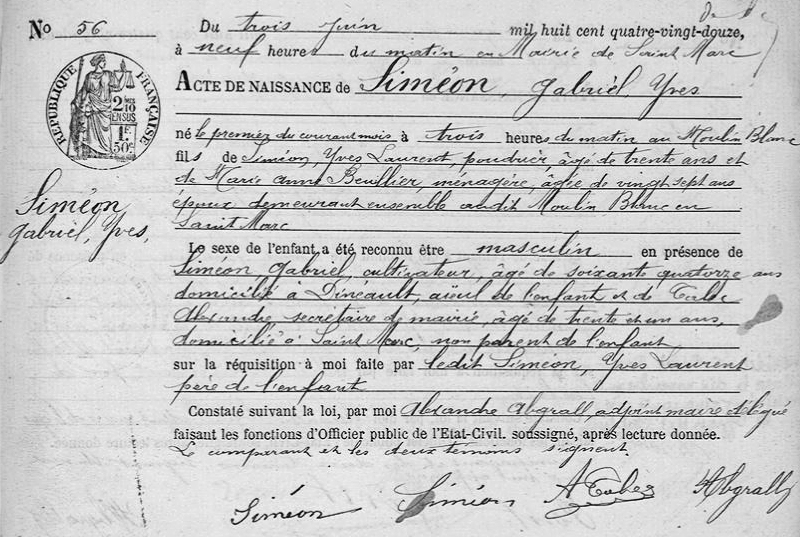 No 56
Du trois juin mil huit cent quatre-vingt-douze,
à neuf heures du matin en Mairie de Saint Marc
ACTE DE NAISSANCE de Siméon, Gabriel, Yves
né le premier du courant mois à trois heures du matin au Moulin Blanc
fils de Siméon, Yves Laurent, poudrier, âgé de trente ans et
de Marie Anne Beullier, ménagère, âgée de vingt sept ans
époux demeurant ensemble audit Moulin Blanc en
Saint Marc
Le sexe de l'enfant a été reconnu être masculin en présence de
Siméon, Gabriel, cultivateur, âgé de soixante quatorze ans
domicilié à Dinéault, aïeul de l'enfant et de
Alexandre secrétaire de mairie, âgé de trente et un ans,
domicilié à Saint Marc, non parent de l'enfant
sur la réquisition à moi faite par ledit Siméon, Yves Laurent
père de l'enfant
Constaté suivant la loi, par moi Alexandre Abgrall, adjoint maire délégué
faisant les fonctions d'Officier public de l'Etat-Civil. soussigné, après lecture donnée.
Le comparant et les deux témoins signent
Siméon Siméon Abgrall
RÉPUBLIQUE FRANÇAISE
2/10 EN SUS
1F 50c
Siméon
Gabriel, Yves,